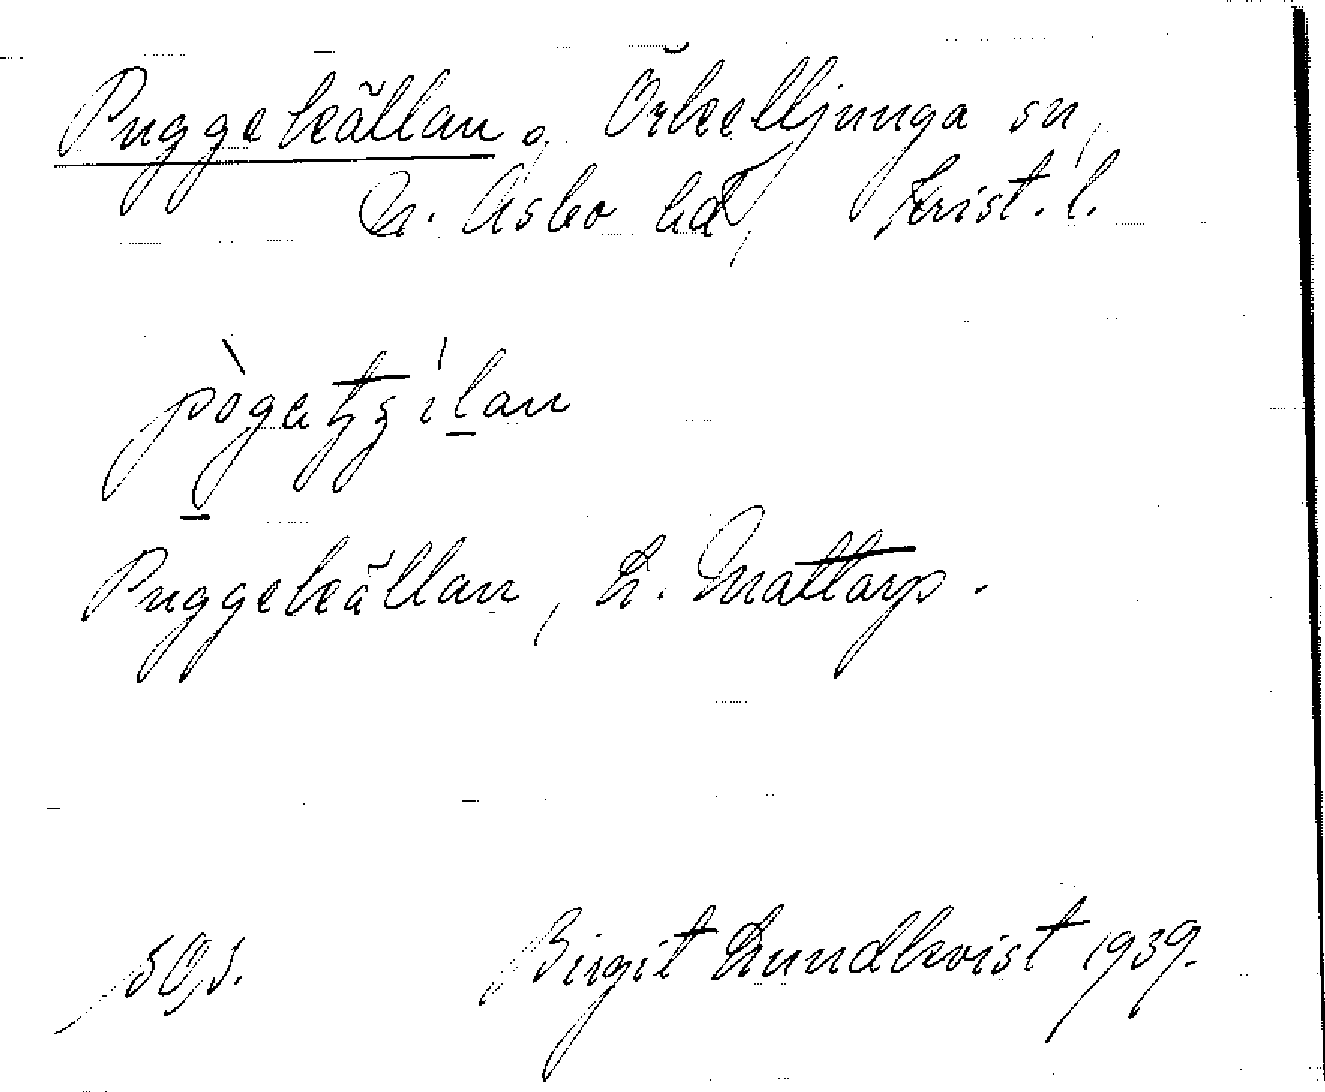 Puggekällan, Örkelljunga sn,
N. Åsbo hd, Krist. l.
Puggekällan, L. Smattarp.
Birgit Lundkvist 1939.